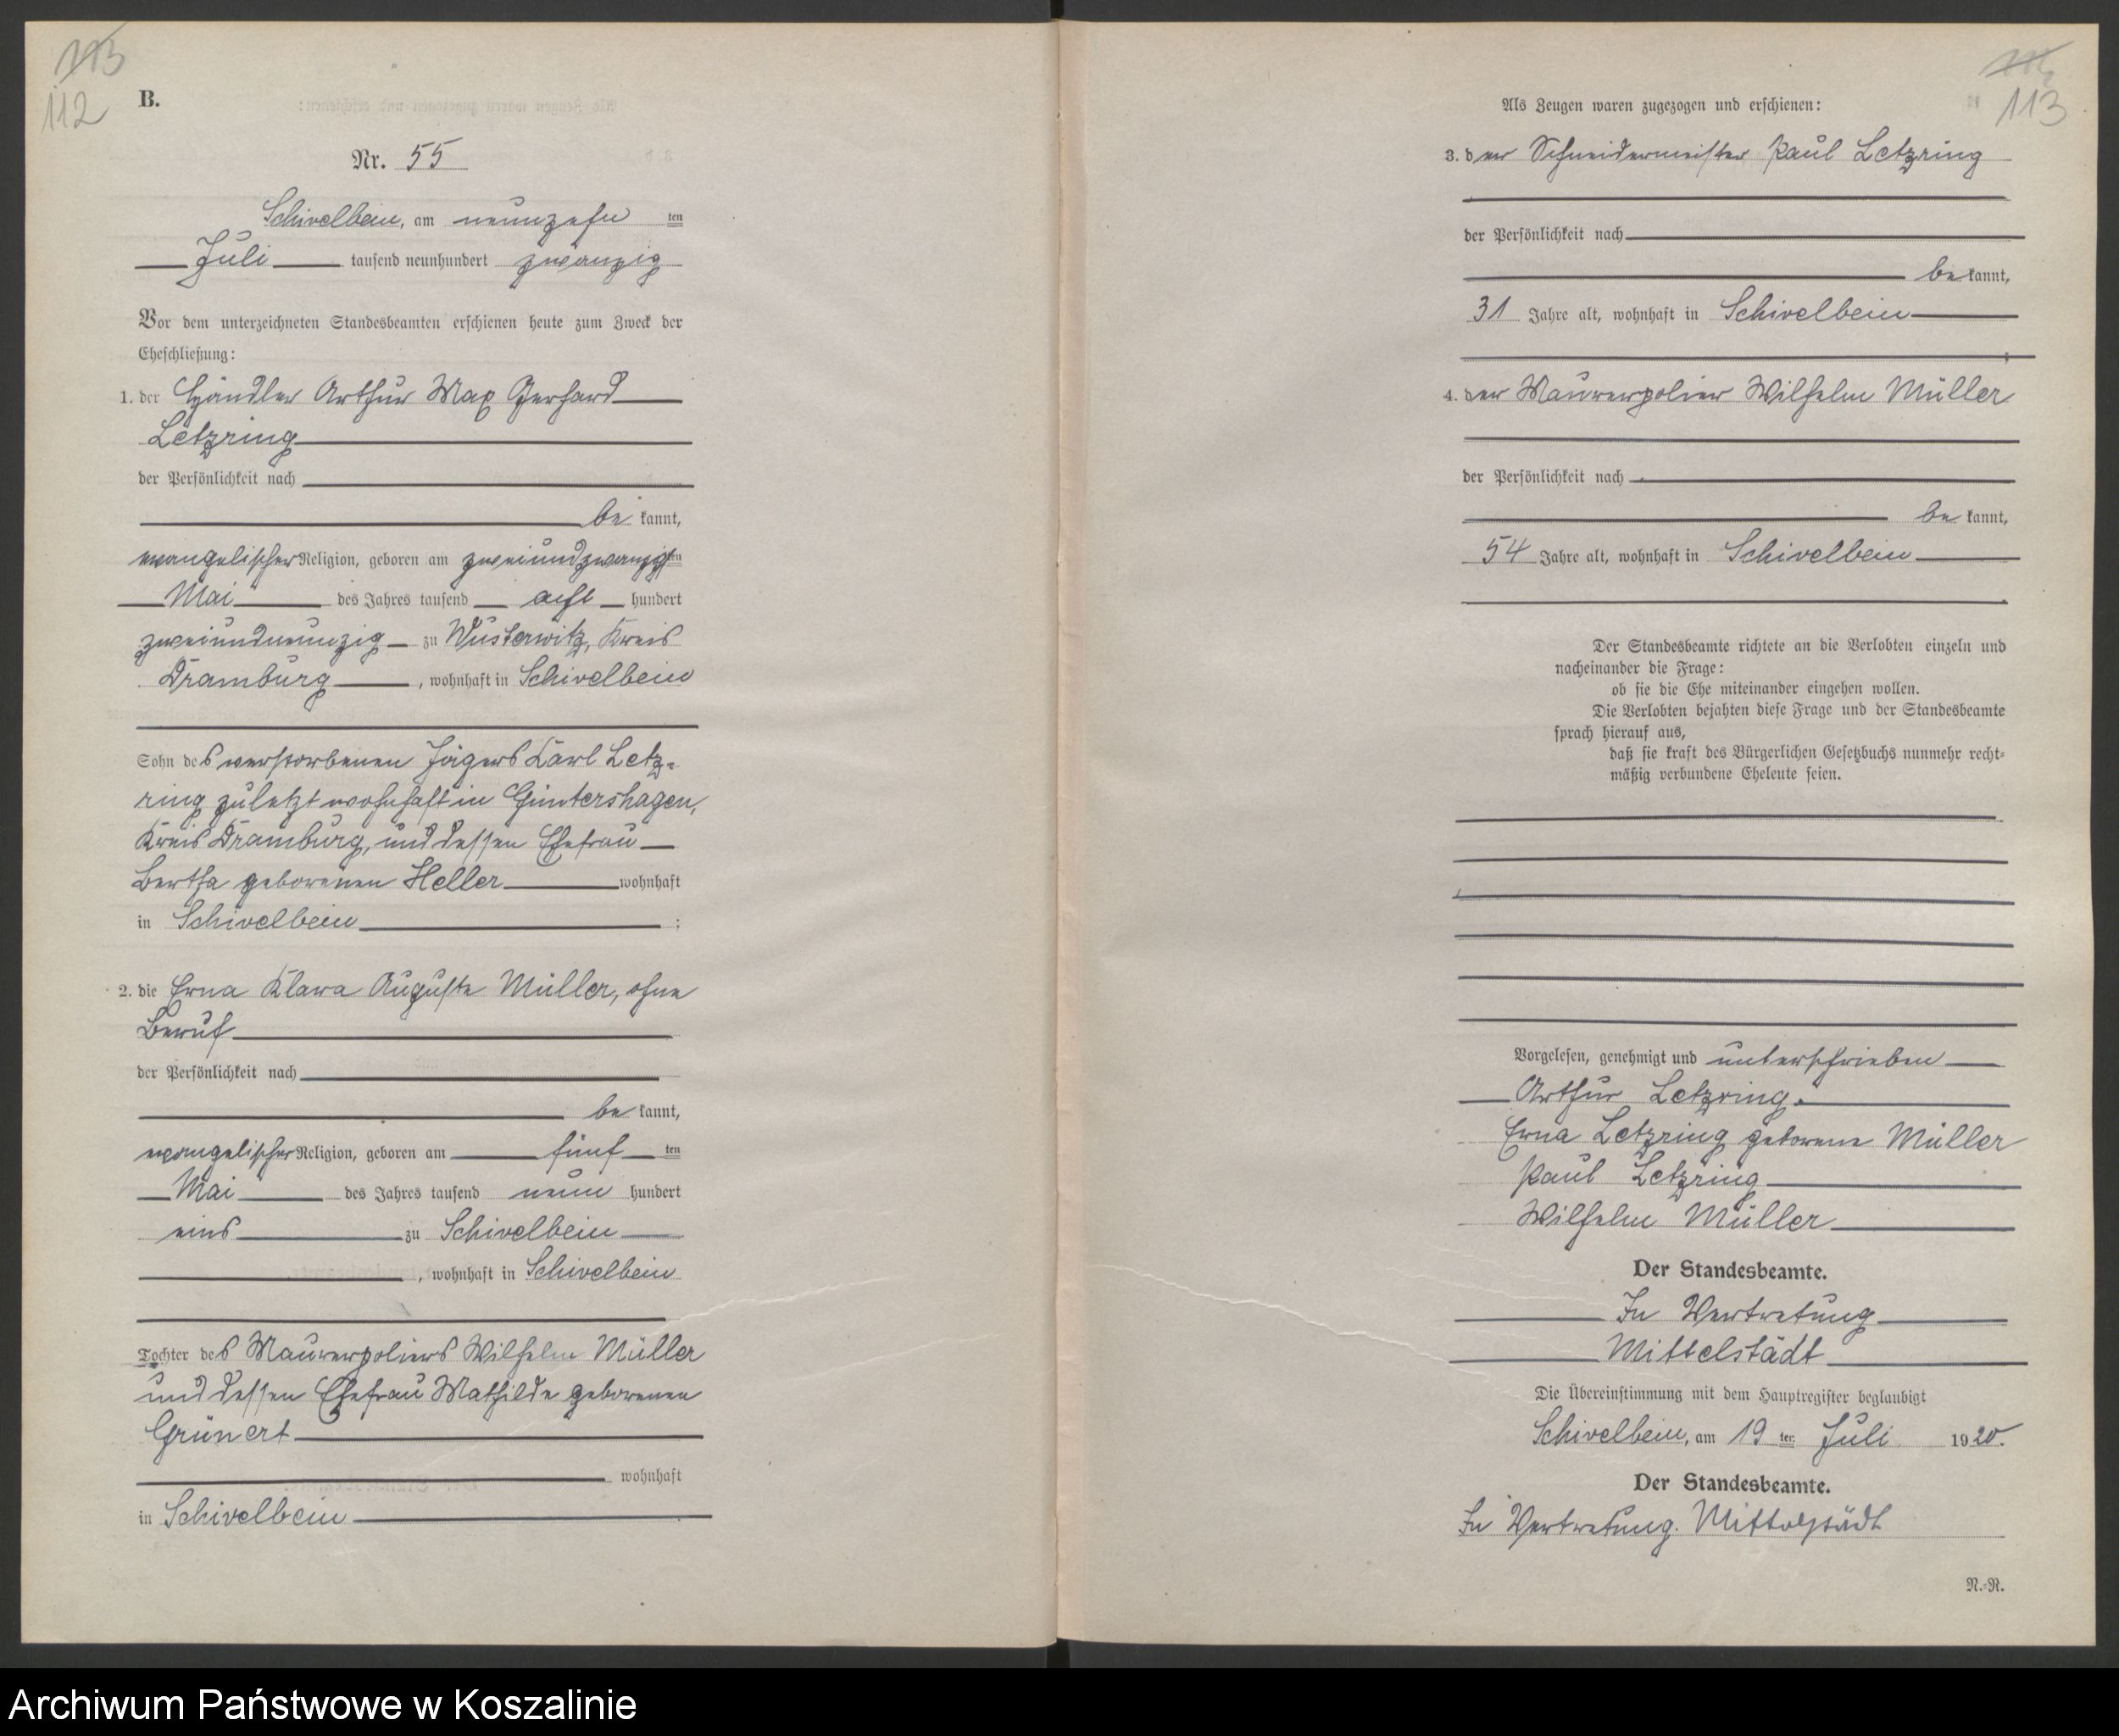 113
112
B.
Nr. 55
Schivelbein, am neunzehn ten
Juli tausend neunhundert zwanzig
Vor dem unterzeichneten Standesbeamten erschienen heute zum Zweck der
Eheschließung:
1. der Händler Arthur Max Gerhard
Letzring
der Persönlichkeit nach
be kannt,
evangelischer Religion, geboren am zweiundzwanzigsten
Mai des Jahres tausend acht hundert
zweiundneunzig zu Wusterwitz, Kreis
Dramburg, wohnhaft in Schivelbein
Sohn des verstorbenen Jägers Karl Letz-
ring zuletzt wohnhaft in Güntershagen,
Kreis Dramburg, und dessen Ehefrau
Bertha geborenen Heller wohnhaft
in Schivelbein ;
2. die Erna Klara Auguste Müller, ohne
Beruf
der Persönlichkeit nach
be kannt,
evangelischer Religion, geboren am fünf ten
Mai des Jahres tausend neun hundert
eins zu Schivelbein
, wohnhaft in Schivelbein
Tochter des Maurerpoliers Wilhelm Müller
und dessen Ehefrau Mathilde geborenen
Grünert
wohnhaft
in Schivelbein
113
Als Zeugen waren zugezogen und erschienen:
3. der Schneidermeister Paul Letzring
der Persönlichkeit nach
be kannt,
31 Jahre alt, wohnhaft in Schivelbein
;
4. der Maurerpolier Wilhelm Müller
der Persönlichkeit nach
be kannt,
54 Jahre alt, wohnhaft in Schivelbein
Der Standesbeamte richtete an die Verlobten einzeln und
nacheinander die Frage:
ob sie die Ehe miteinander eingehen wollen.
Die Verlobten bejahten diese Frage und der Standesbeamte
sprach hierauf aus,
daß sie kraft des Bürgerlichen Gesetzbuchs nunmehr recht-
mäßig verbundene Eheleute seien.
Vorgelesen, genehmigt und unterschrieben
Arthur Letzring.
Erna Letzring geborene Müller
Paul Letzring
Wilhelm Müller
Der Standesbeamte.
In Vertretung
Mittelstädt
Die Übereinstimmung mit dem Hauptregister beglaubigt
Schivelbein, am 19 ten Juli 1920.
Der Standesbeamte.
In Vertretung. Mittelstädt
N.-R.
Archiwum Państwowe w Koszalinie